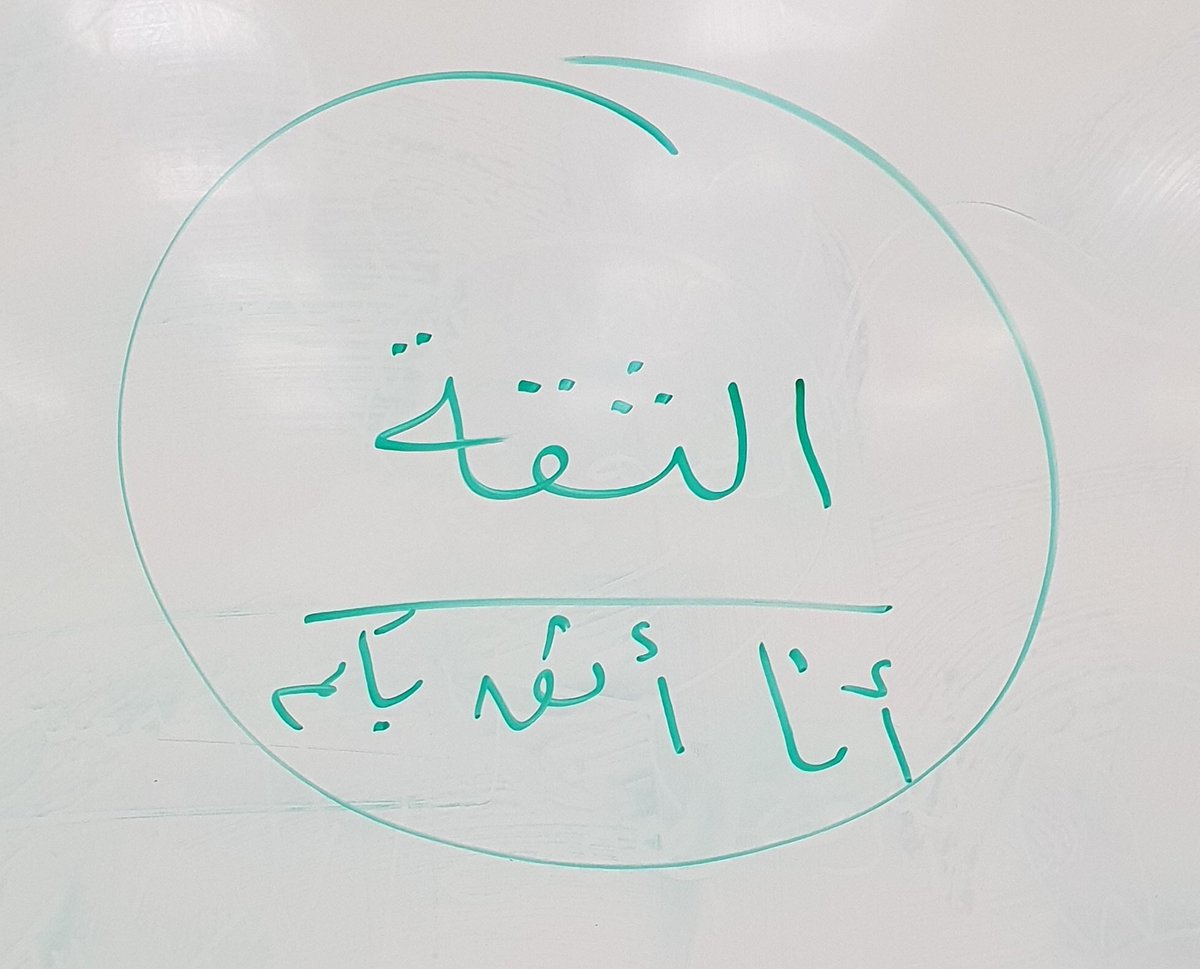 الثقة
أنا أثق بكم